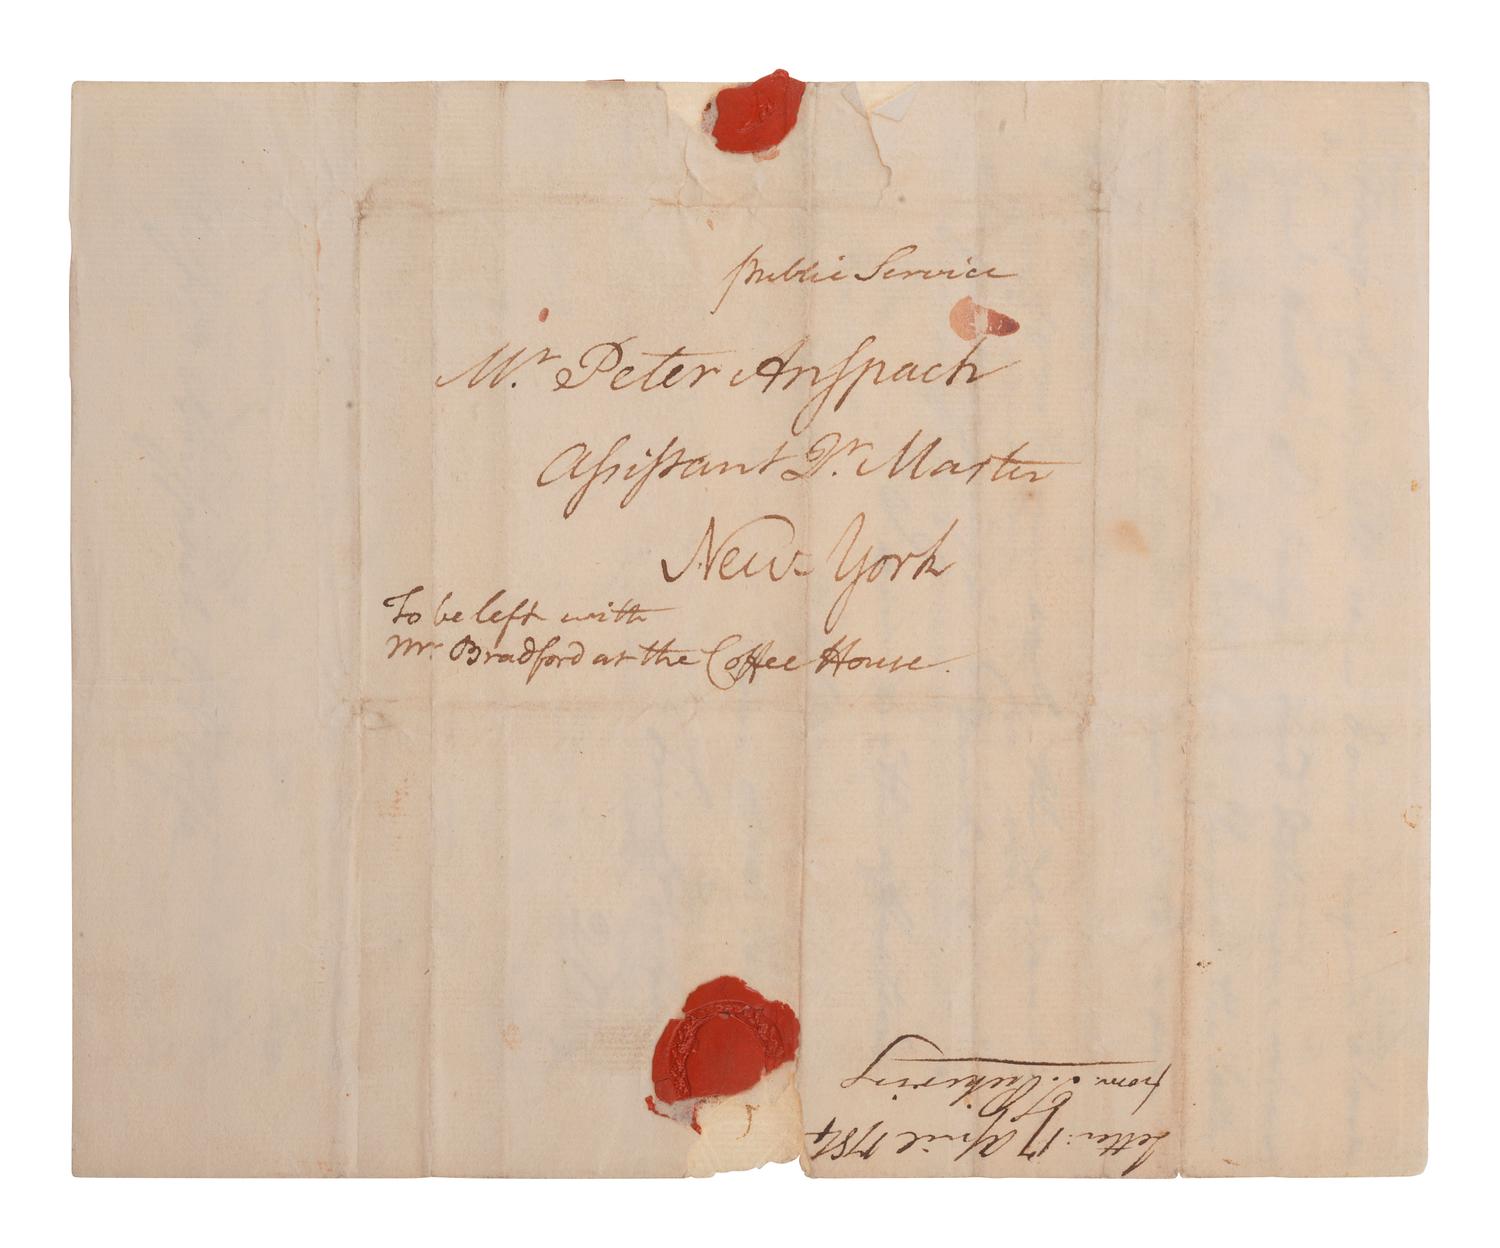 public Service
Mr. Peter Anspach
Assistant Qr. Master
New-York
To be left with
Mr. Bradford at the Coffee House.
Letter: 17 April 1784
from T. Pickering